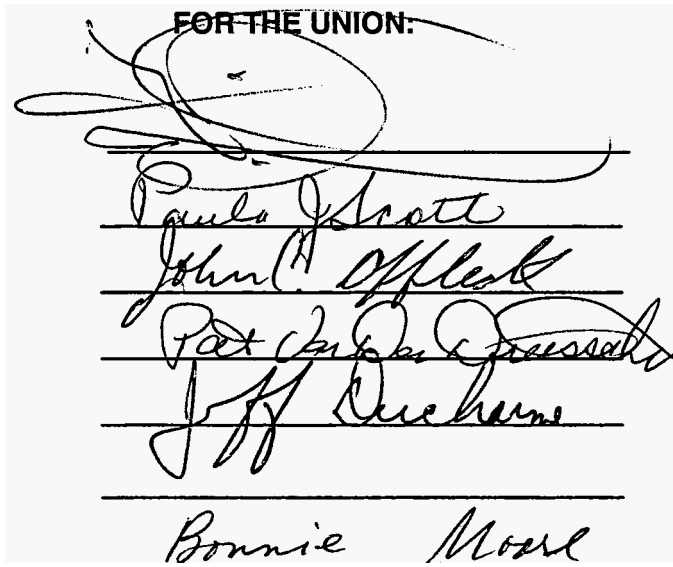 FOR THE UNION:
Paula J Scott
John C. Affleck
Pat Van Den
Jeff Ducharme
Bonnie Moore